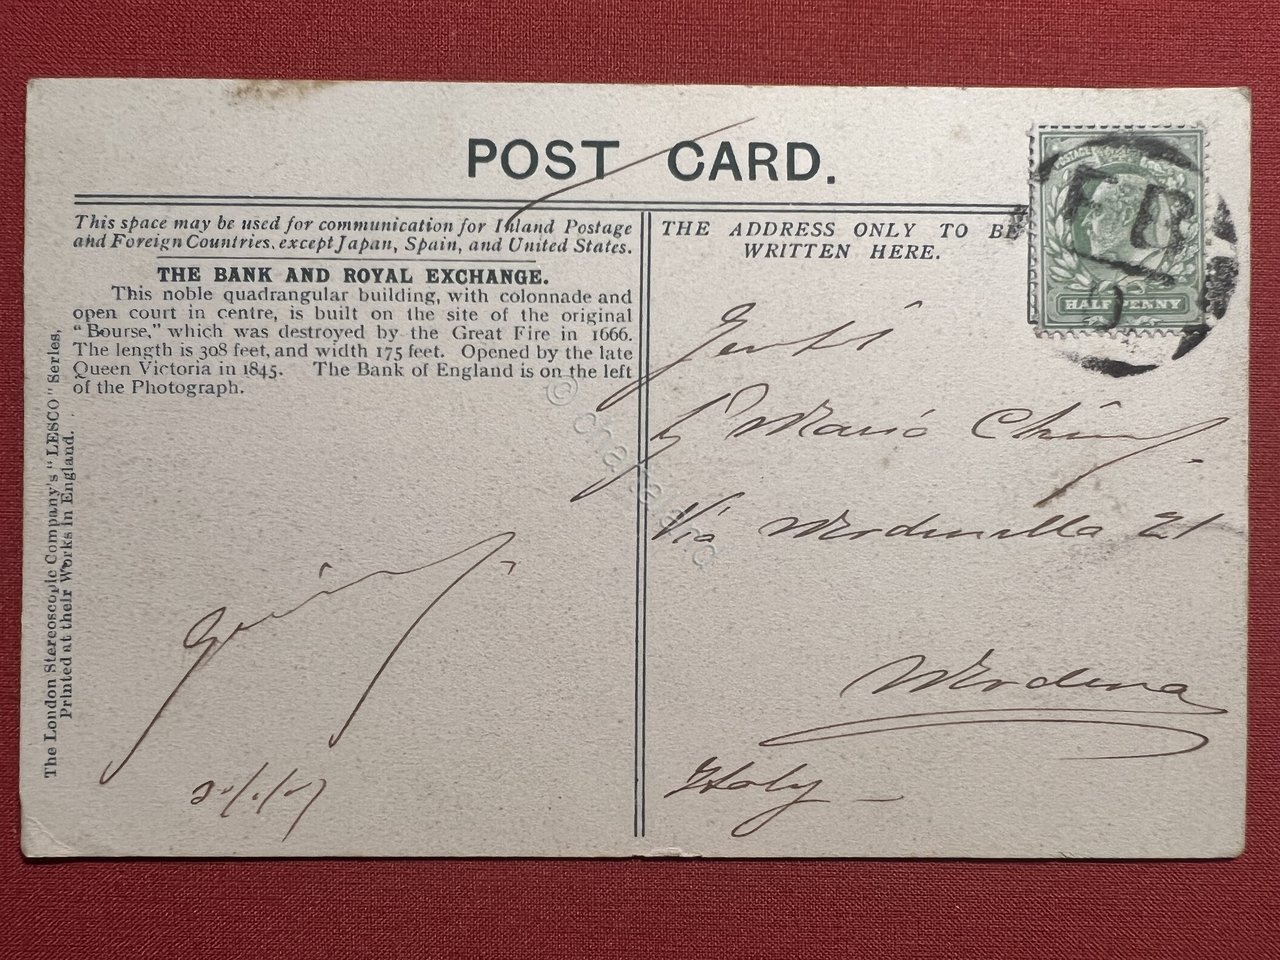 POST CARD.
This space may be used for communication for Inland Postage
and Foreign Countries, except Japan, Spain, and United States.
THE BANK AND ROYAL EXCHANGE.
This noble quadrangular building, with colonnade and
open court in centre, is built on the site of the original
"Bourse," which was destroyed by the Great Fire in 1666.
The length is 308 feet, and width 175 feet. Opened by the late
Queen Victoria in 1845. The Bank of England is on the left
of the Photograph.
The London Stereoscopic Company's "LESCO" Series.
Printed at their Works in England.
THE ADDRESS ONLY TO BE
WRITTEN HERE.
POSTAGE
HALFPENNY
Mario
Via 21
Modena
Italy